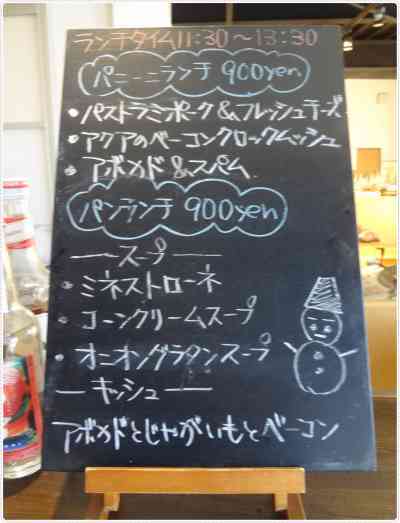 ランチタイム11:30〜13:30
パニーニランチ 900yen
・パストラミポーク&フレッシュチーズ
・アクアのベーコンクロックムッシュ
・アボカド&スパム
パンランチ 900yen
―スープ―
・ミネストローネ
・コーンクリームスープ
・オニオングラタンスープ
―キッシュ―
アボカドとじゃがいもとベーコン